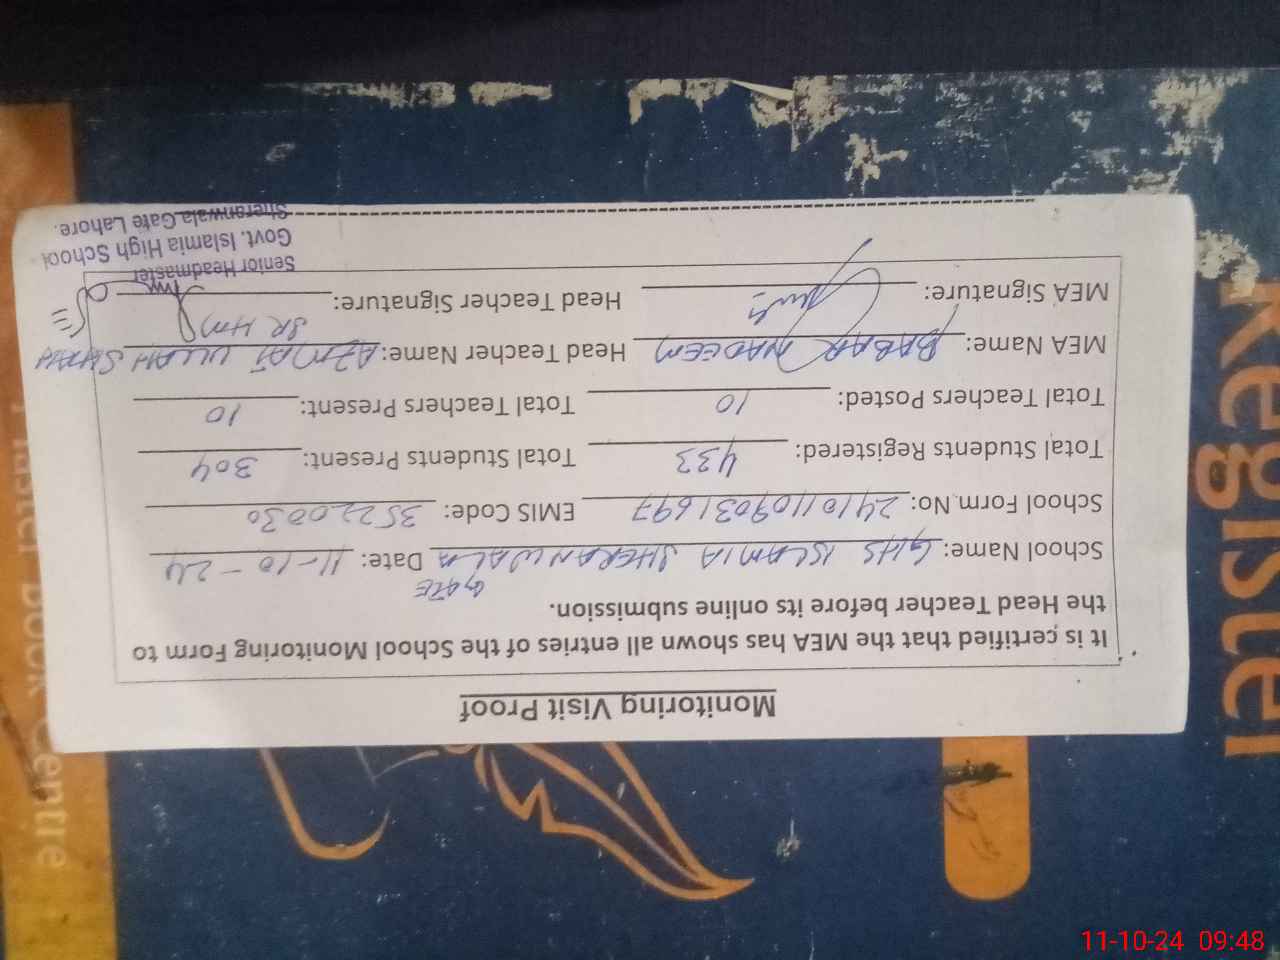 Monitoring Visit Proof
It is certified that the MEA has shown all entries of the School Monitoring Form to
the Head Teacher before its online submission.
School Name: GHS ISLAMIA SHERANWALA GATE Date: 11-10-24
School Form No: 24101109031697 EMIS Code: 35220030
Total Students Registered: 433 Total Students Present: 304
Total Teachers Posted: 10 Total Teachers Present: 10
MEA Name: BABAR NADEEM Head Teacher Name: AZMAT ULLAH SHAH
SR HM
MEA Signature: Head Teacher Signature:
Senior Headmaster
Govt. Islamia High School
Sheranwala Gate Lahore.
Register
Master Book Centre
11-10-24 09:48